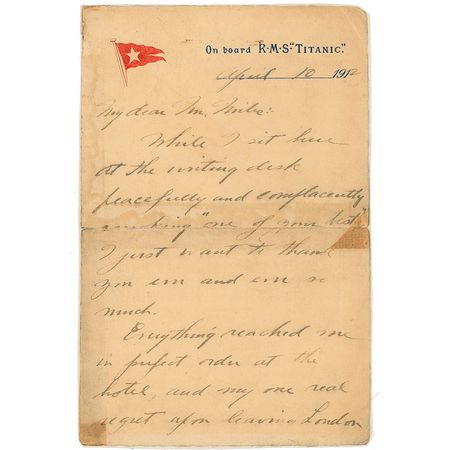 On board R·M·S "TITANIC."
April 10 1912
My dear Mr.
While I sit here
at the writing desk
peacefully and complacently
smoking "one of your best"
I just want to thank
you ever and ever so
much.
Everything reached me
in perfect order at the
hotel, and my one real
regret upon leaving London